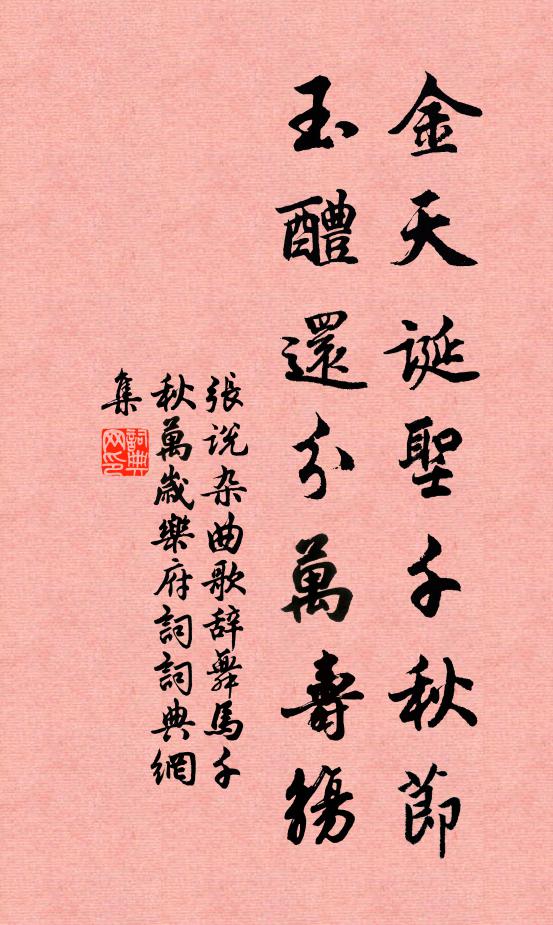 金天誕聖千秋節
玉醴還分萬壽觴
張説杂曲歌辞舞馬千
秋萬歲樂府詞詞典網
集
詞典
网印